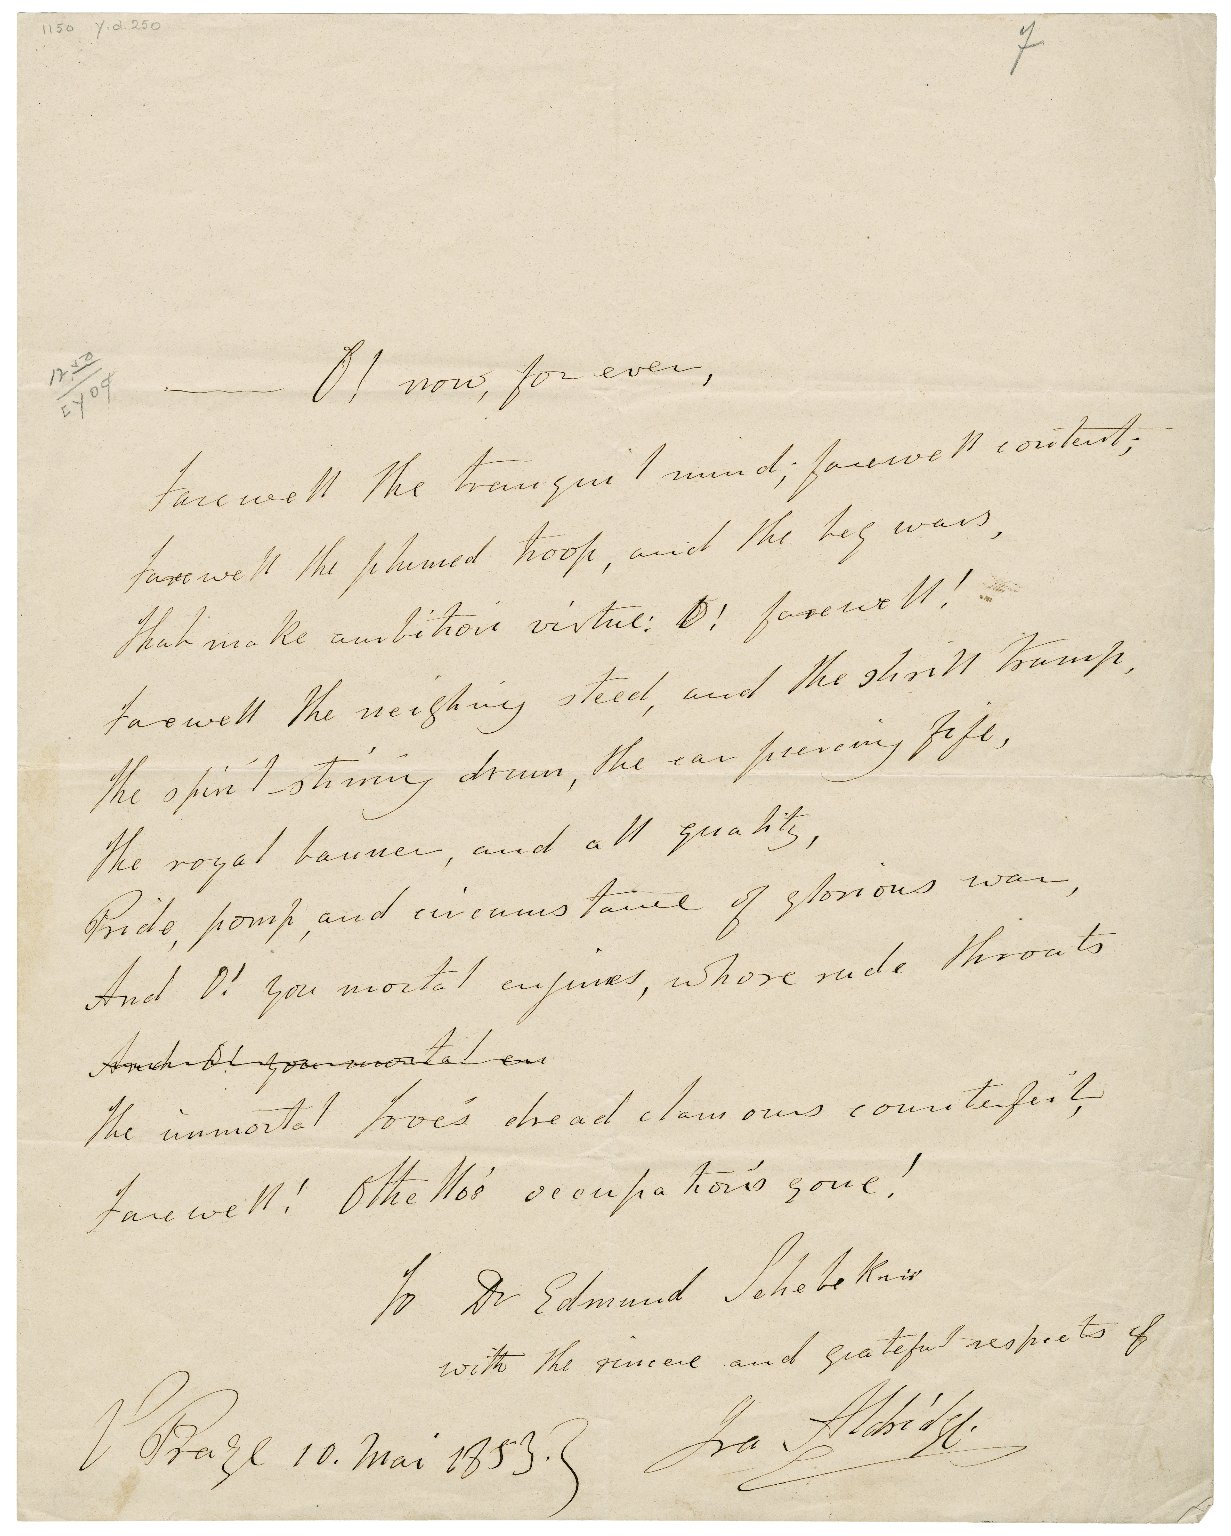 1150 Y.d.250
7
—— O! now, for ever,
Farewell the tranquil mind; farewell content;
Farewell the plumed troop, and the big wars,
That make ambition virtue: O! farewell!
Farewell the neighing steed, and the shrill trump,
The spirit stirring drum, the ear piercing fife,
The royal banner, and all quality,
Pride, pomp, and circumstance of glorious war,
And O! you mortal engines, whose rude throats
And O! you mortal en
The immortal Jove's dread clamours counterfeit,
Farewell! Othello's occupation's gone!
To Dr Edmund
with the sincere and grateful respects of
Ira Aldridge.
V Praze 10. Mai 1853.